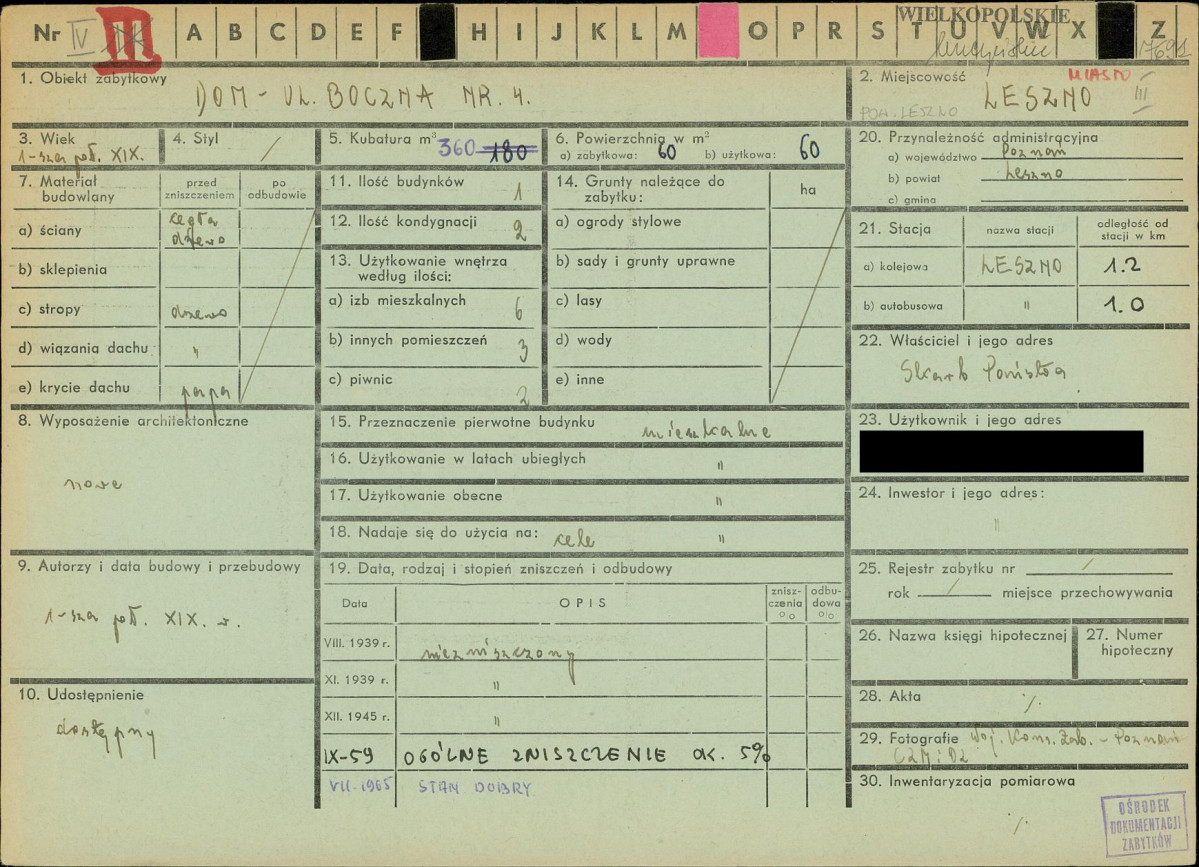 Nr IV III A B C D E F H I J K L M O P R S T U V W X Z
WIELKOPOLSKIE
1. Obiekt zabytkowy
DOM - UL. BOCZNA NR. 4.
2. Miejscowość MIASTO III
POW. LESZNO LESZNO
3. Wiek
1-sza poł. XIX.
4. Styl /
5. Kubatura m³ 360 180
6. Powierzchnia w m²
a) zabytkowa: 60 b) użytkowa: 60
20. Przynależność administracyjna
a) województwo Poznań
b) powiat Leszno
c) gmina
7. Materiał budowlany
przed zniszczeniem
po odbudowie
a) ściany cegła drzewo
b) sklepienia
c) stropy drzewo
d) wiązania dachu "
e) krycie dachu papa
11. Ilość budynków 1
12. Ilość kondygnacji 2
13. Użytkowanie wnętrza według ilości:
a) izb mieszkalnych 6
b) innych pomieszczeń 3
c) piwnic 2
14. Grunty należące do zabytku:
ha
a) ogrody stylowe
b) sady i grunty uprawne
c) lasy
d) wody
e) inne
21. Stacja
nazwa stacji
odległość od stacji w km
a) kolejowa LESZNO 1.2
b) autobusowa " 1.0
22. Właściciel i jego adres
Skarb Państwa
8. Wyposażenie architektoniczne
nowe
15. Przeznaczenie pierwotne budynku mieszkalne
16. Użytkowanie w latach ubiegłych "
17. Użytkowanie obecne "
18. Nadaje się do użycia na: cele "
23. Użytkownik i jego adres
24. Inwestor i jego adres:
"
9. Autorzy i data budowy i przebudowy
1-sza poł. XIX. w.
10. Udostępnienie
dostępny
19. Data, rodzaj i stopień zniszczeń i odbudowy
Data
OPIS
znisz-czenia %
odbu-dowa %
VIII. 1939 r. niezniszczony
XI. 1939 r. "
XII. 1945 r. "
IX-59 OGÓLNE ZNISZCZENIE OK. 5%
VII-1965 STAN DOBRY
25. Rejestr zabytku nr /
rok / miejsce przechowywania
26. Nazwa księgi hipotecznej
27. Numer hipoteczny
28. Akta ./.
29. Fotografie Woj. Kons. Zab. - Poznań
30. Inwentaryzacja pomiarowa
./.
OŚRODEK
DOKUMENTACJI
ZABYTKÓW